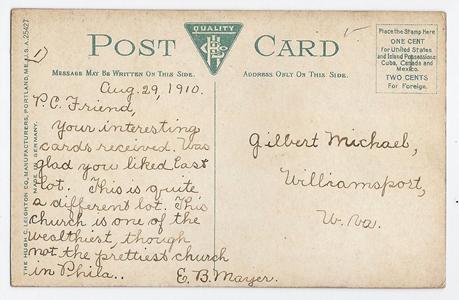 QUALITY
POST CARD
MESSAGE MAY BE WRITTEN ON THIS SIDE.
ADDRESS ONLY ON THIS SIDE.
Place the Stamp Here
ONE CENT
for United States
and Island Possessions
Cuba, Canada and
Mexico.
TWO CENTS
For Foreign.
THE HUGH C. LEIGHTON CO., MANUFACTURERS, PORTLAND, ME., U.S.A. 25427
MADE IN GERMANY.
1)
Aug. 29, 1910.
P.C. Friend,
Your interesting
cards received. Was
glad you liked last
lot. This is quite
a different lot. This
church is one of the
wealthiest, though
not the prettiest church
in Phila..
E. B. Mayer.
Gilbert Michael,
Williamsport,
W. Va.